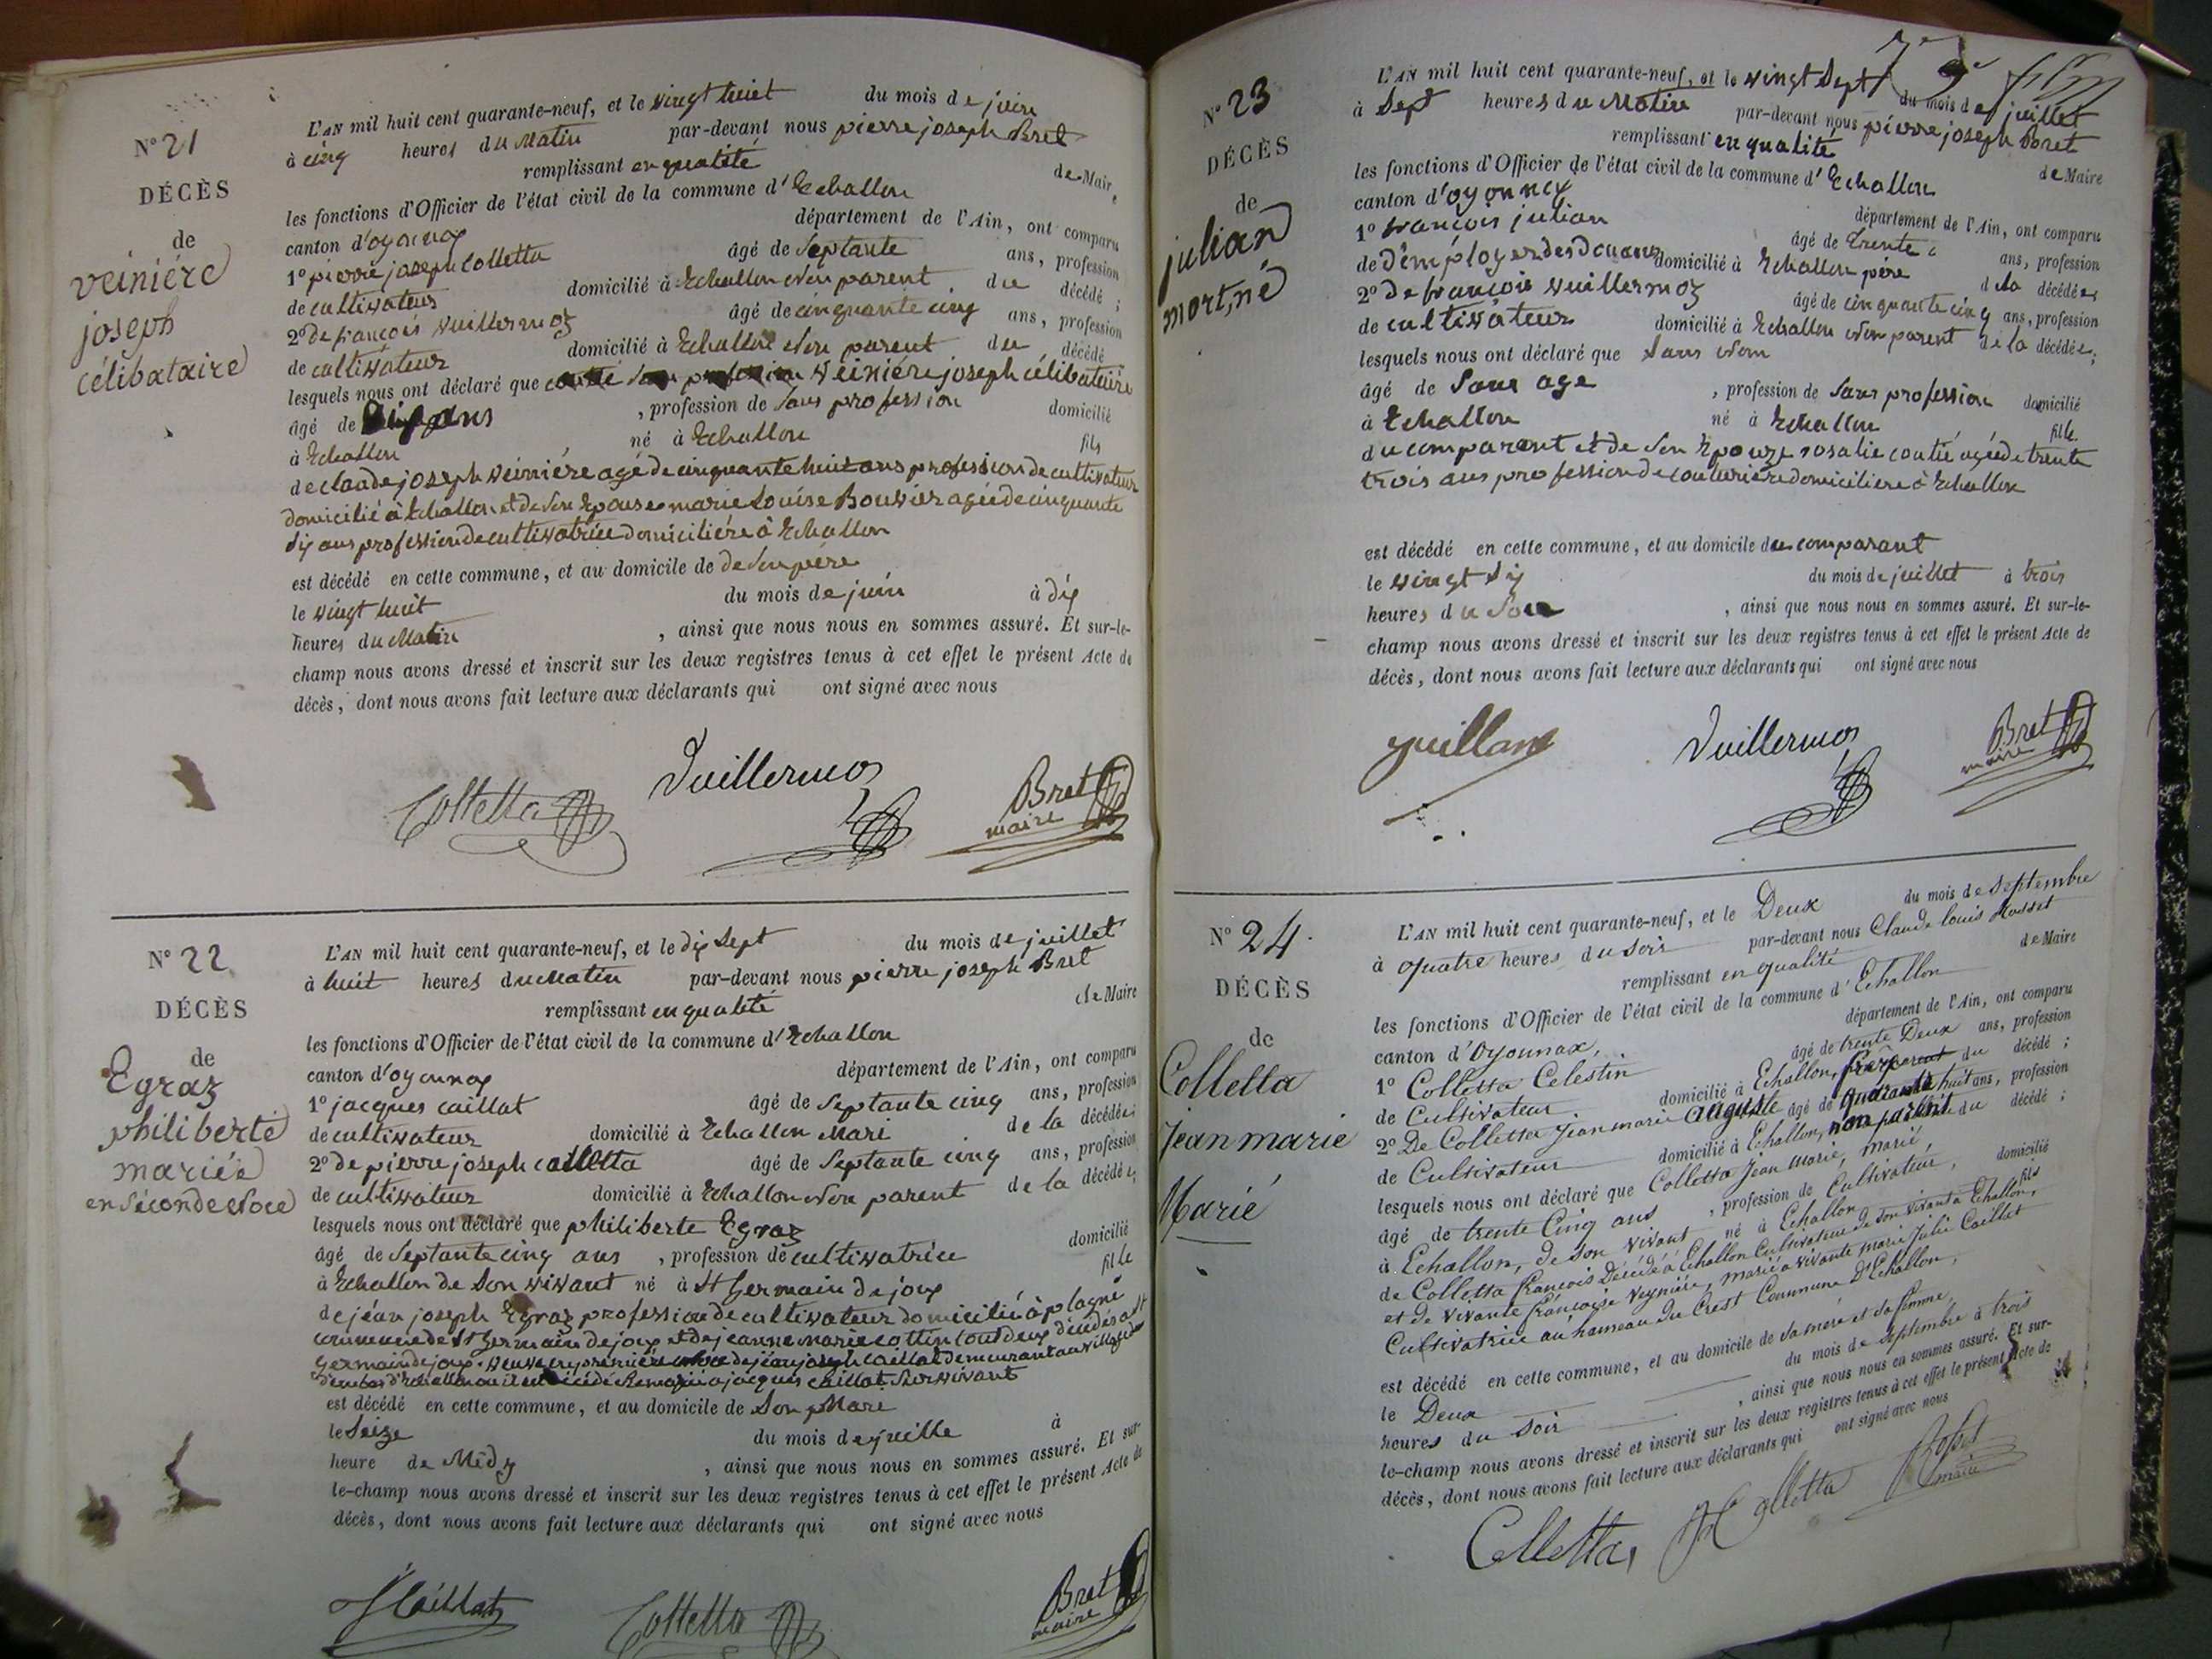 N° 21
DÉCÈS
de
veiniére
joseph
célibataire
L'AN mil huit cent quarante-neuf, et le vingt huit du mois de juin
à cinq heures du Matin par-devant nous pierre joseph Bret
remplissant en qualité de Maire
les fonctions d'Officier de l'état civil de la commune d'Echallon
canton d'oyonnax département de l'Ain, ont comparu
1° pierre joseph Colletta âgé de Septante ans, profession
de cultivateur domicilié à Echallon Non parent du décédé;
2° de françois vuillermoz âgé de cinquante cinq ans, profession
de cultivateur domicilié à Echallon Non parent du décédé
lesquels nous ont déclaré que veiniére joseph célibataire
âgé de ans, profession de Sans profession domicilié
à Echallon né à Echallon fils
de claude joseph veiniére agé de cinquante huit ans profession de cultivateur
domicilié à Echallon et de Son Epouse marie Louise Bouvier agée de cinquante
dix ans profession de cultivatrice domiciliére à Echallon
est décédé en cette commune, et au domicile de de Son pére
le vingt huit du mois de juin à dix
heures du Matin, ainsi que nous nous en sommes assuré. Et sur-le-
champ nous avons dressé et inscrit sur les deux registres tenus à cet effet le présent Acte de
décès, dont nous avons fait lecture aux déclarants qui ont signé avec nous
Colletta Vuillermoz Bret
maire
N° 22
DÉCÈS
de
Egraz
philiberte
mariée
en Séconde Noce
L'AN mil huit cent quarante-neuf, et le dix Sept du mois de juillet
à huit heures du Matin par-devant nous pierre joseph Bret
remplissant en qualité de Maire
les fonctions d'Officier de l'état civil de la commune d'Echallon
canton d'oyonnax département de l'Ain, ont comparu
1° jacques caillat âgé de Septante cinq ans, profession
de cultivateur domicilié à Echallon Mari de la décédée;
2° de pierre joseph collétta âgé de Septante cinq ans, profession
de cultivateur domicilié à Echallon Non parent de la décédée;
lesquels nous ont déclaré que philiberte Egraz
âgé de Septante cinq ans, profession de cultivatrice domicilié
à Echallon de Son vivant né à St Germain de joux fille
de jéan joseph Egraz profession de cultivateur domicilié à plagne
commune de St Germain de joux et de jeanne marie cottin tout deux décédés a St
Germain de joux. veuve en premiére de jéan joseph caillat demeurant au village
jacques caillat Survivant
est décédé en cette commune, et au domicile de Son Mari
le Seize du mois de juille à
heure de Midy, ainsi que nous nous en sommes assuré. Et sur-
le-champ nous avons dressé et inscrit sur les deux registres tenus à cet effet le présent Acte de
décès, dont nous avons fait lecture aux déclarants qui ont signé avec nous
Caillat Colletta Bret
maire
N° 23
DÉCÈS
de
julian
mort, né
L'AN mil huit cent quarante-neuf, et le vingt Sept du mois de juillet
à Sept heures du Matin par-devant nous pierre joseph Bret
remplissant en qualité de Maire
les fonctions d'Officier de l'état civil de la commune d'Echallon
canton d'oyonnax département de l'Ain, ont comparu
1° francois julian âgé de trente ans, profession
de D'employer des Douanes domicilié à Echallon pére de la décédée;
2° de francois vuillermoz âgé de cinquante cinq ans, profession
de cultivateur domicilié à Echallon Non parent de la décédée;
lesquels nous ont déclaré que Sans Nom
âgé de Sans age, profession de Sans profession domicilié
à Echallon né à Echallon fille
du comparant et de Son Epouze rosalie coutié agée de trente
trois ans profession de couturiére domiciliere à Echallon
est décédé en cette commune, et au domicile du comparant
le vingt Six du mois de juillet à trois
heures du Soir, ainsi que nous nous en sommes assuré. Et sur-le-
champ nous avons dressé et inscrit sur les deux registres tenus à cet effet le présent Acte de
décès, dont nous avons fait lecture aux déclarants qui ont signé avec nous
Vuillermoz Bret
maire
N° 24.
DÉCÈS
de
Colletta
Jean marie
Marié
L'AN mil huit cent quarante-neuf, et le Deux du mois de Septembre
à quatre heures du Soir par-devant nous Claude louis Rosset
remplissant en qualité de Maire
les fonctions d'Officier de l'état civil de la commune d'Echallon
canton d'Oyonnax, département de l'Ain, ont comparu
1° Colletta Celestin âgé de trente Deux ans, profession
de Cultivateur domicilié à Echallon, frère du décédé;
2° De Colletta Jean marie auguste âgé de quarante huit ans, profession
de Cultivateur domicilié à Echallon, non parent du décédé;
lesquels nous ont déclaré que Colletta Jean Marie, marié,
âgé de trente Cinq ans, profession de Cultivateur, domicilié
à Echallon, de son vivant né à Echallon fils
de Colletta françois Décédé à Echallon Cultivateur de son vivant à Echallon,
et de vivante françoise Veyniére, marié a vivante marie Julie Caillat
Cultivatrice au hameau du Crest Commune D'Echallon,
est décédé en cette commune, et au domicile de Sa mère et Sa femme,
le Deux du mois de Septembre à trois
heures du Soir, ainsi que nous nous en sommes assuré. Et sur-
le-champ nous avons dressé et inscrit sur les deux registres tenus à cet effet le présent Acte de
décès, dont nous avons fait lecture aux déclarants qui ont signé avec nous
Colletta, Colletta Rosset
maire